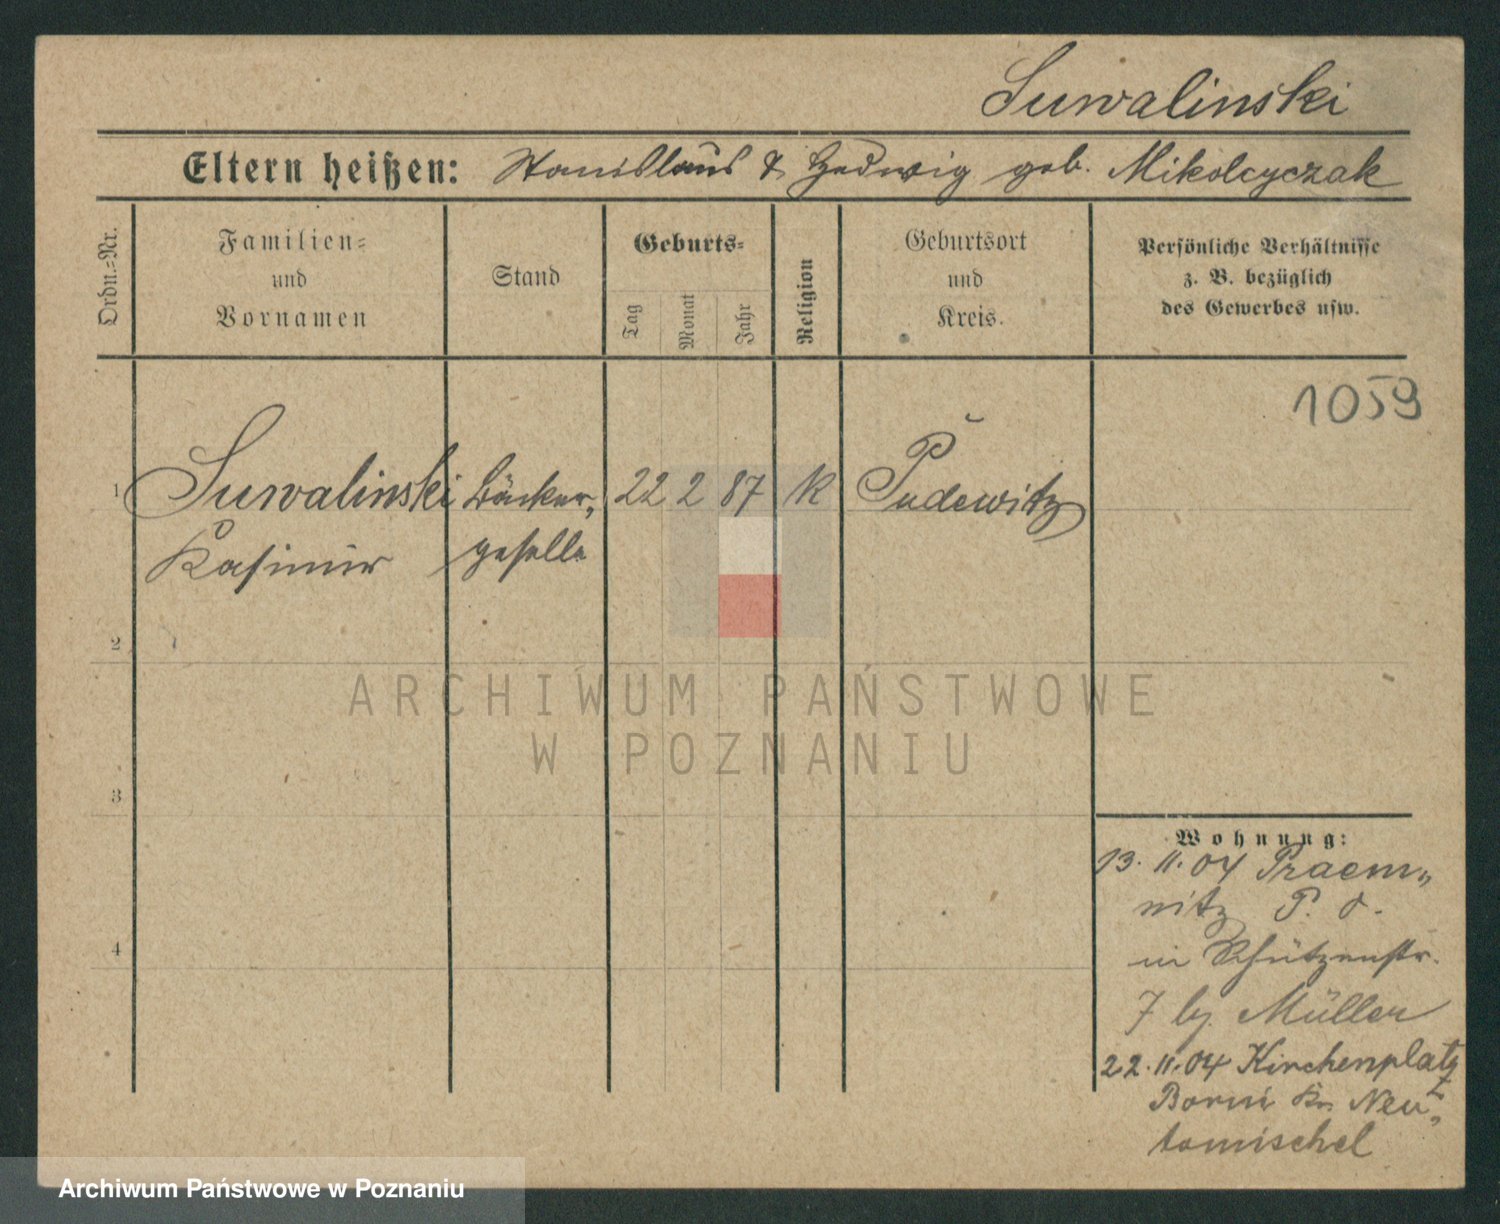 Suwalinski
Eltern heißen: Stanislaus & Hedwig geb. Mikolcyczak
Ordn.=Nr.
Familien=
und
Vornamen
Stand
Geburts=
Tag
Monat
Jahr
Religion
Geburtsort
und
Kreis.
Persönliche Verhältnisse
z. B. bezüglich
des Gewerbes usw.
1059
1 Suwalinski Bäcker, 22 2 87 K Pudewitz
Kasimir geselle
2
3
4
ARCHIWUM PAŃSTWOWE
W POZNANIU
Wohnung:
13. 11. 04 Praem,,
nitz P. O.
in Schützenstr.
7 by Müller
22. 11. 04 Kirchenplatz
Borui Kr. Neu,
tomischel
Archiwum Państwowe w Poznaniu